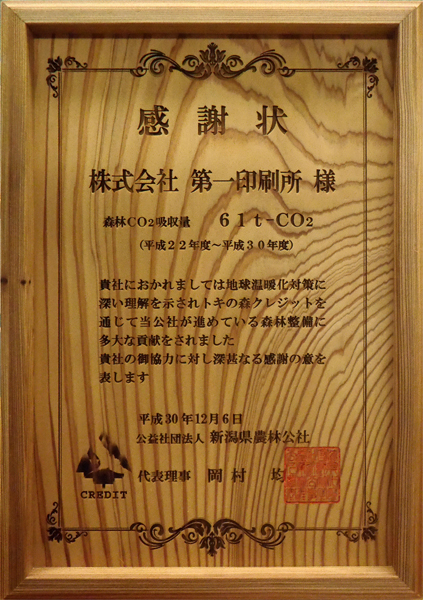 感謝状
株式会社 第一印刷所 様
森林CO2吸収量 61t-CO2
(平成22年度~平成30年度)
貴社におかれましては地球温暖化対策に
深い理解を示されトキの森クレジットを
通じて当公社が進めている森林整備に
多大な貢献をされました
貴社の御協力に対し深甚なる感謝の意を
表します
平成30年12月6日
公益社団法人 新潟県農林公社
代表理事 岡村 均
CREDIT